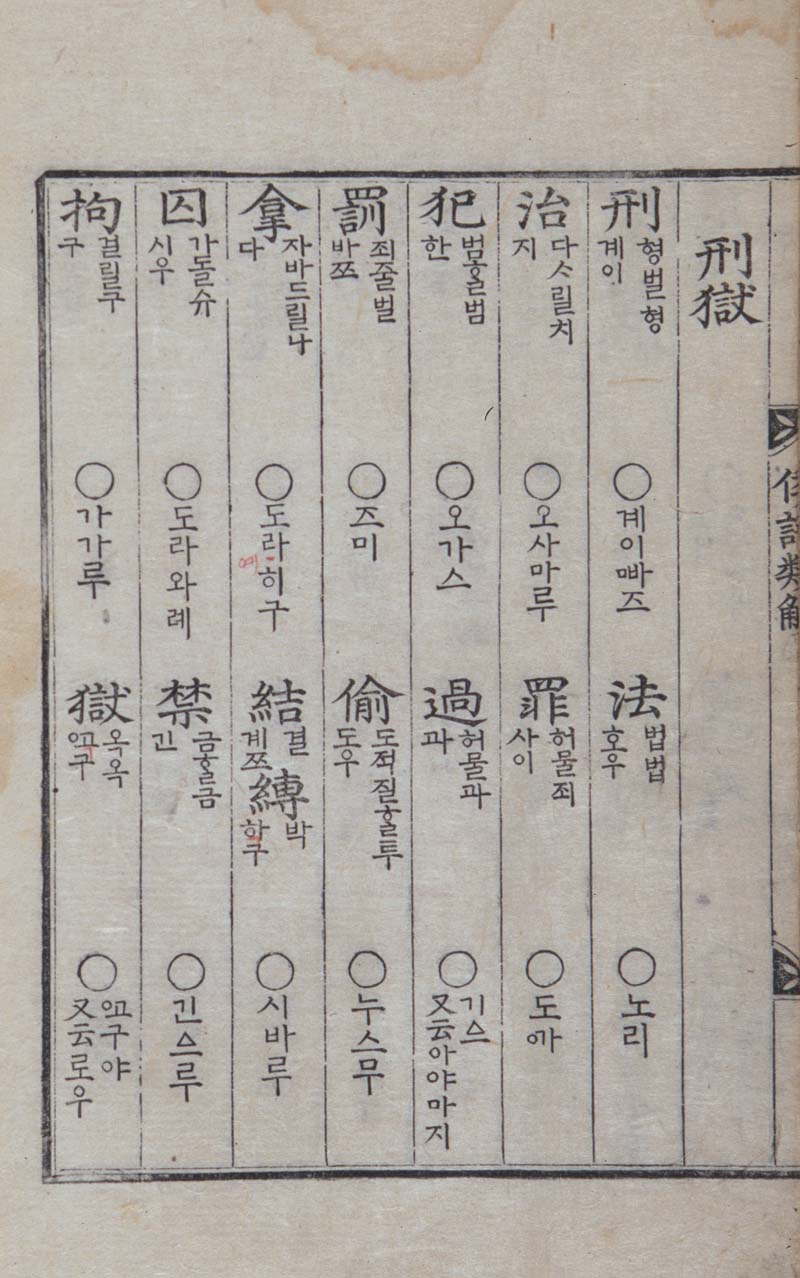 倭語類解
刑獄
刑 형벌형 계이 ○계이ᄲᅡ즈 法 법법 호우 ○노리
治 다ᄉᆞ릴치 지 ○오사마루 罪 허물죄 사이 ○도ᅁᅡ
犯 범ᄒᆞᆯ범 한 ○오가스 過 허물과 과 ○기스 又云아야마지
罰 죄줄벌 바쯔 ○즈미 偷 도적질ᄒᆞᆯ투 도우 ○누스무
拿 자바드릴나 다 ○도라히구 예 結 결 계쯔 縛 박 학구 ○시바루
囚 가돌슈 시우 ○도라와례 禁 금ᄒᆞᆯ금 긴 ○긴스루
拘 걸릴구 구 ○가가루 獄 옥옥 ᅁᅩ구 ○ᅁᅩ구야 又云로우